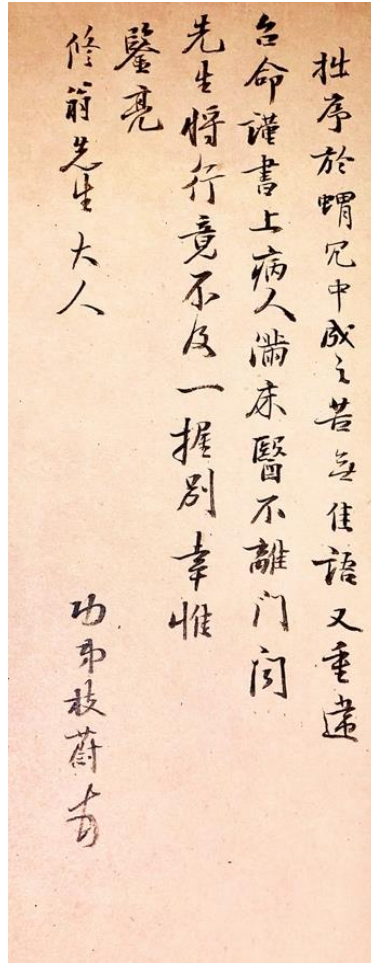 拙序於蝟冗中成之苦無佳語又重違
台命謹書上病人滿床醫不離门闻
先生将行竟不及一握别幸惟
鑒亮
修翁先生大人
功弟枝蔚頓首